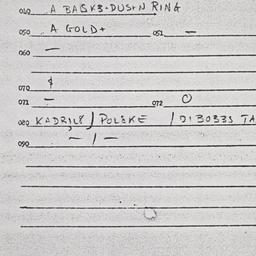 040 A BASKB-DUSTN RING
050 A GOLD+ 051 –
060 –
070 $
071 – 072 0
080 KADRILJ / POLSKE / DI 30333 TA
– / –
090